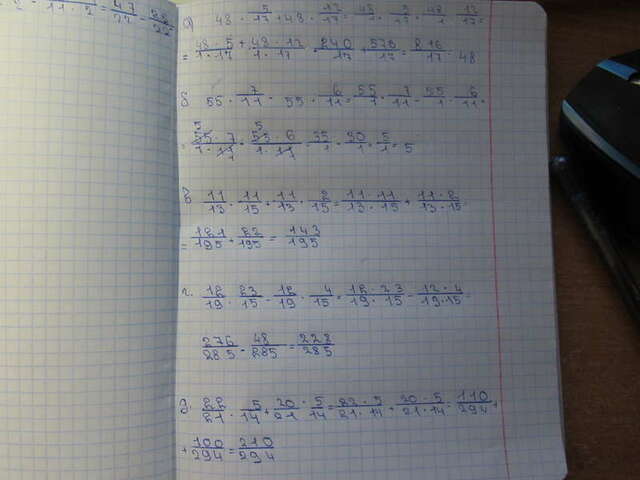 11 · 2 = 47/22 = 58/22
а) 48 · 5/17 + 48 · 12/17 = 48/1 · 5/17 + 48/1 · 12/17 =
= 48 · 5/1 · 17 + 48 · 12/1 · 17 = 240/17 + 576/17 = 816/17 = 48
б 55 · 7/11 - 55 · 6/11 = 55/1 · 7/11 - 55/1 · 6/11 =
= 55 · 7/1 · 11 - 55 · 6/1 · 11 = 35/1 - 30/1 = 5/1 = 5
в 11/13 · 11/15 + 11/13 · 2/15 = 11 · 11/13 · 15 + 11 · 2/13 · 15 =
= 121/195 + 22/195 = 143/195
г. 12/19 · 23/15 - 12/19 · 4/15 = 12 · 23/19 · 15 - 12 · 4/19 · 15 =
276/285 - 48/285 = 228/285
д. 22/21 · 5/14 + 20/21 · 5/14 = 22 · 5/21 · 14 + 20 · 5/21 · 14 = 110/294 +
+ 100/294 = 210/294